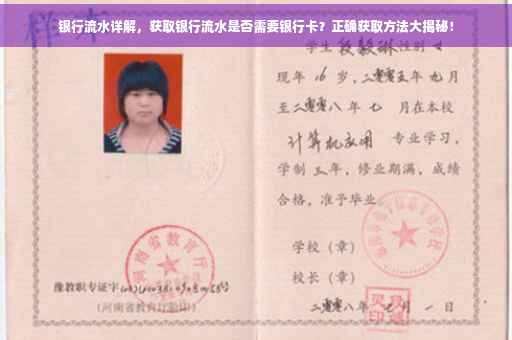 银行流水详解，获取银行流水是否需要银行卡？正确获取方法大揭秘！
学生 段毅琳 性别 女
现年 16 岁，二零零五年 九月
至二零零八年 七 月在本校
计算机应用 专业学习，
学制 三年，修业期满，成绩
合格，准予毕业。
学校（章）
校长（章）
二零零八年 七 月 一 日
河南省教育厅
豫教职专证字
（河南省教育厅验印）